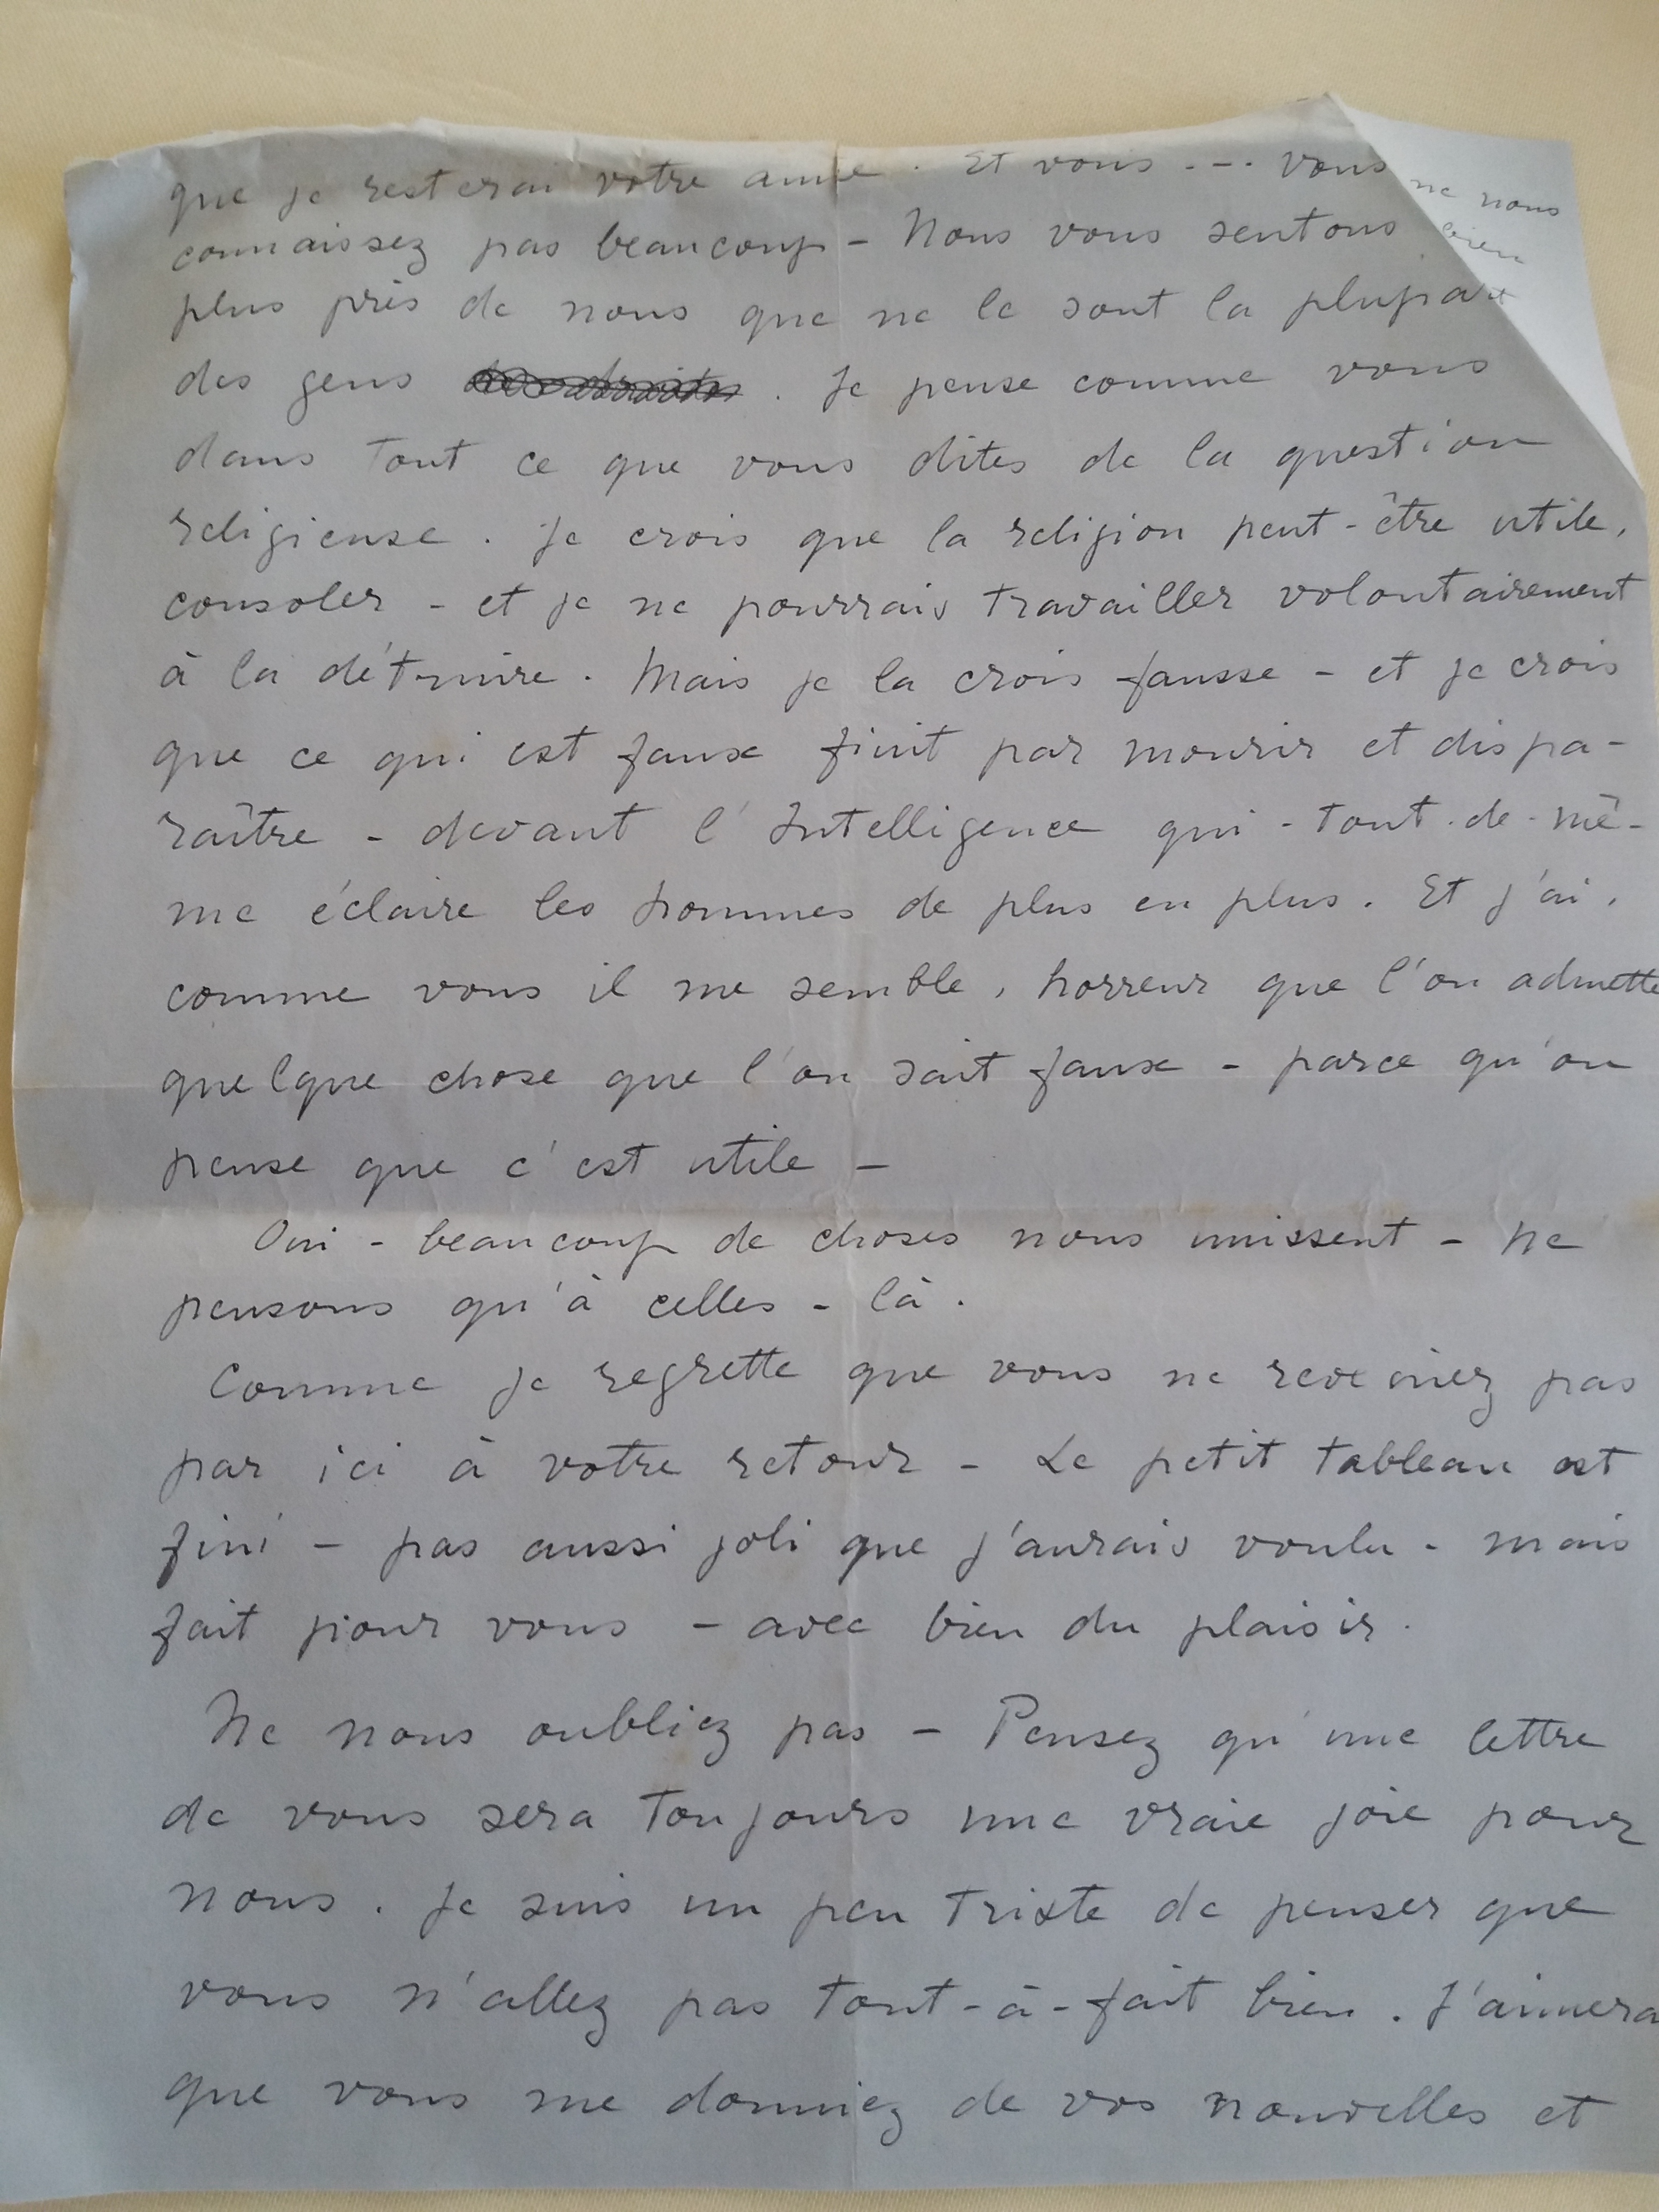 que je resterai votre amie. Et vous --- vous ne nous
connaissez pas beaucoup - Nous vous sentons bien
plus près de nous que ne le sont la plupart
des gens . Je pense comme vous
dans tout ce que vous dites de la question
religieuse. Je crois que la religion peut-être utile,
consoler - et je ne pourrais travailler volontairement
à la détruire. Mais je la crois fausse - et je crois
que ce qui est faux finit par mourir et dispa-
raître - devant l'Intelligence qui - tout-de-mê-
me éclaire les hommes de plus en plus. Et j'ai,
comme vous il me semble, horreur que l'on admette
quelque chose que l'on sait faux - parce qu'on
pense que c'est utile -
Oui - beaucoup de choses nous unissent - ne
pensons qu'à celles-là.
Comme je regrette que vous ne reveniez pas
par ici à votre retour - Le petit tableau est
fini - pas aussi joli que j'aurais voulu - mais
fait pour vous - avec bien du plaisir.
Ne nous oubliez pas - Pensez qu'une lettre
de vous sera toujours une vraie joie pour
nous. Je suis un peu triste de penser que
vous n'allez pas tout-à-fait bien. J'aimera
que vous me donniez de vos nouvelles et